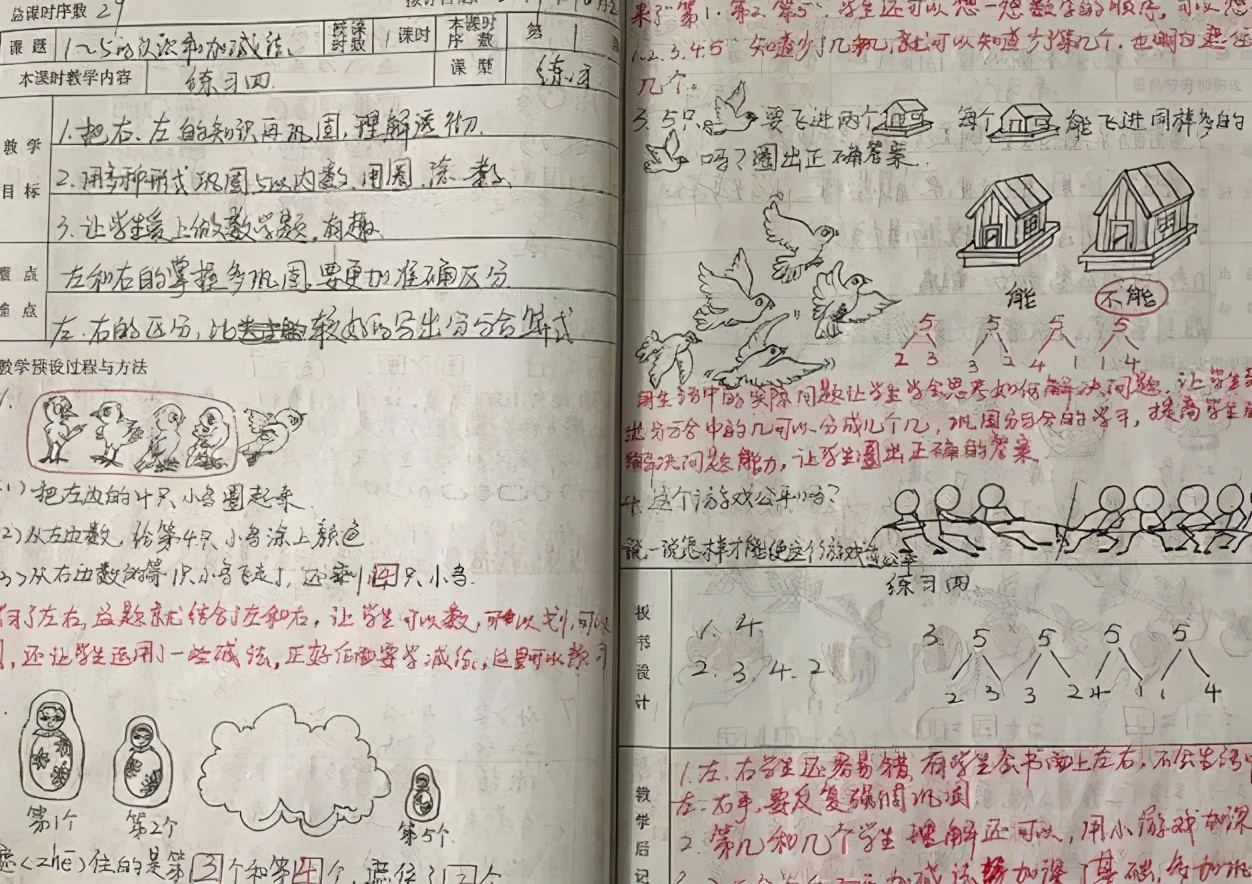 总课时序数 29
课题 1~5的认识和加减法 授课时数 1课时 本课时序数 第 1
本课时教学内容 练习四 课型 练习
教学目标
1.把右、左的知识再巩固,理解透彻.
2.用多种形式巩固5以内数,用圈、涂、数、
3.让学生爱上做数学题,有趣.
重点 左和右的掌握多巩固,要更加准确区分
难点 左、右的区分,比较好的写出分与合算式
教学预设过程与方法
1.
(1)把左边的4只小鸟圈起来
(2)从左边数,给第4只小鸟涂上颜色
(3)从右边数的第1只小鸟飞走了,还剩4只小鸟.
学习了左右,这题就结合了左和右,让学生可以数,可以划,可以
圈,还让学生运用了一些减法,正好后面要学减法,这里可以练习
第1个 第2个 第5个
遮(zhē)住的是第3个和第4个,遮住了2个
来了第1、第2、第5,学生还可以想一想数字的顺序,可以想
1.2.3.4.5 知道少了几和几,就可以知道少了第几个,也明白遮住
几个.
3.5只 要飞进两个 每个 能飞进同样多的
吗?圈出正确答案.
能 不能
5 5 5 5
2 3 3 2 4 1 1 4
用生活中的实际问题让学生学会思考如何解决问题,让学生
出分与合中的几可以分成几个几,巩固分与合的学习,提高学生
解决问题能力,让学生圈出正确的答案
4.这个游戏公平吗?
说一说怎样才能使这个游戏公平
板书设计
练习四
1. 4
2. 3. 4. 2
3. 5 5 5 5
2 3 3 2 4 1 1 4
教学后记
1.左、右学生还容易错,有学生会书面上左右,不会生活中
左、右手,要反复强调巩固
2.第几和几个学生理解还可以,用小游戏加深
加深了基础,多加巩